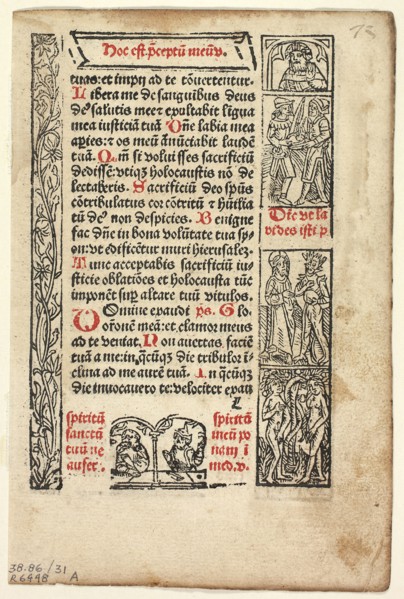 Hoc est p̄ceptū meū v.
tuas: et impij ad te cōuertentur.
Libera me de sanguibus deus
deꝰ salutis mee ⁊ exultabit ligua
mea iusticiā tuā Dn̄e labia mea
apies: ⁊ os meū ānūciabit laudē
tuā. Qm̄ si voluisses sacrificiū
dedissē: vtiqꝫ holocaustis nō de
lectaberis. Sacrificiū deo spūs
cōtribulatus cor cōtritū ⁊ hūilia
tū deꝰ non despicies. Benigne
fac dn̄e in bona volūtate tua sy
on: vt edificētur muri hierusalē.
Tunc acceptabis sacrificiū iu
sticie oblatiōes et holocausta tūc
imponēt suꝑ altare tuū vitulos.
Domine exaudi p̄s. Glo.
orōnē meā: et clamor meus
ad te veniat. Non auertas faciē
tuā a me: in q̄cūqꝫ die tribulor ī
clina ad me aurē tuā. In q̄cūqꝫ
die inuocauero te: velociter exau
Dic vt la
pides isti p.
spiritū
sanctū
tuū ne
aufer.
spiritū
meū po
nam i
med. v.
38.86./31
R6448 A